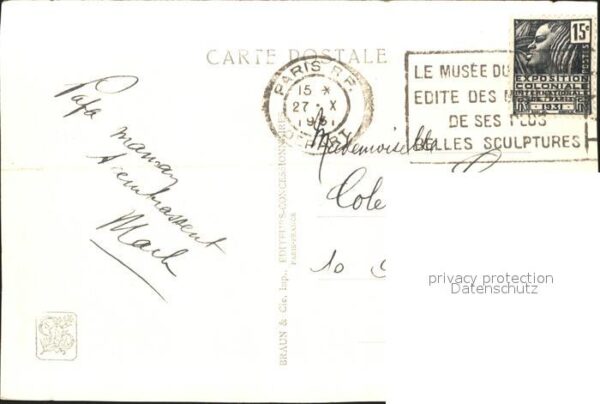 CARTE POSTALE
Papa maman
t'embrassent
PARIS R.P.
15 *
27 · X
1931
LE MUSÉE DU
EDITE DES M
DE SES PLUS
BELLES SCULPTURES
15c
POSTES
EXPOSITION
COLONIALE
INTERNATIONALE
PARIS
1931
Mademoiselle
Cole
10
BRAUN & Cie, Imp., EDITEURS-CONCESSIONNAIRES
PARIS-FRANCE
privacy protection
Datenschutz